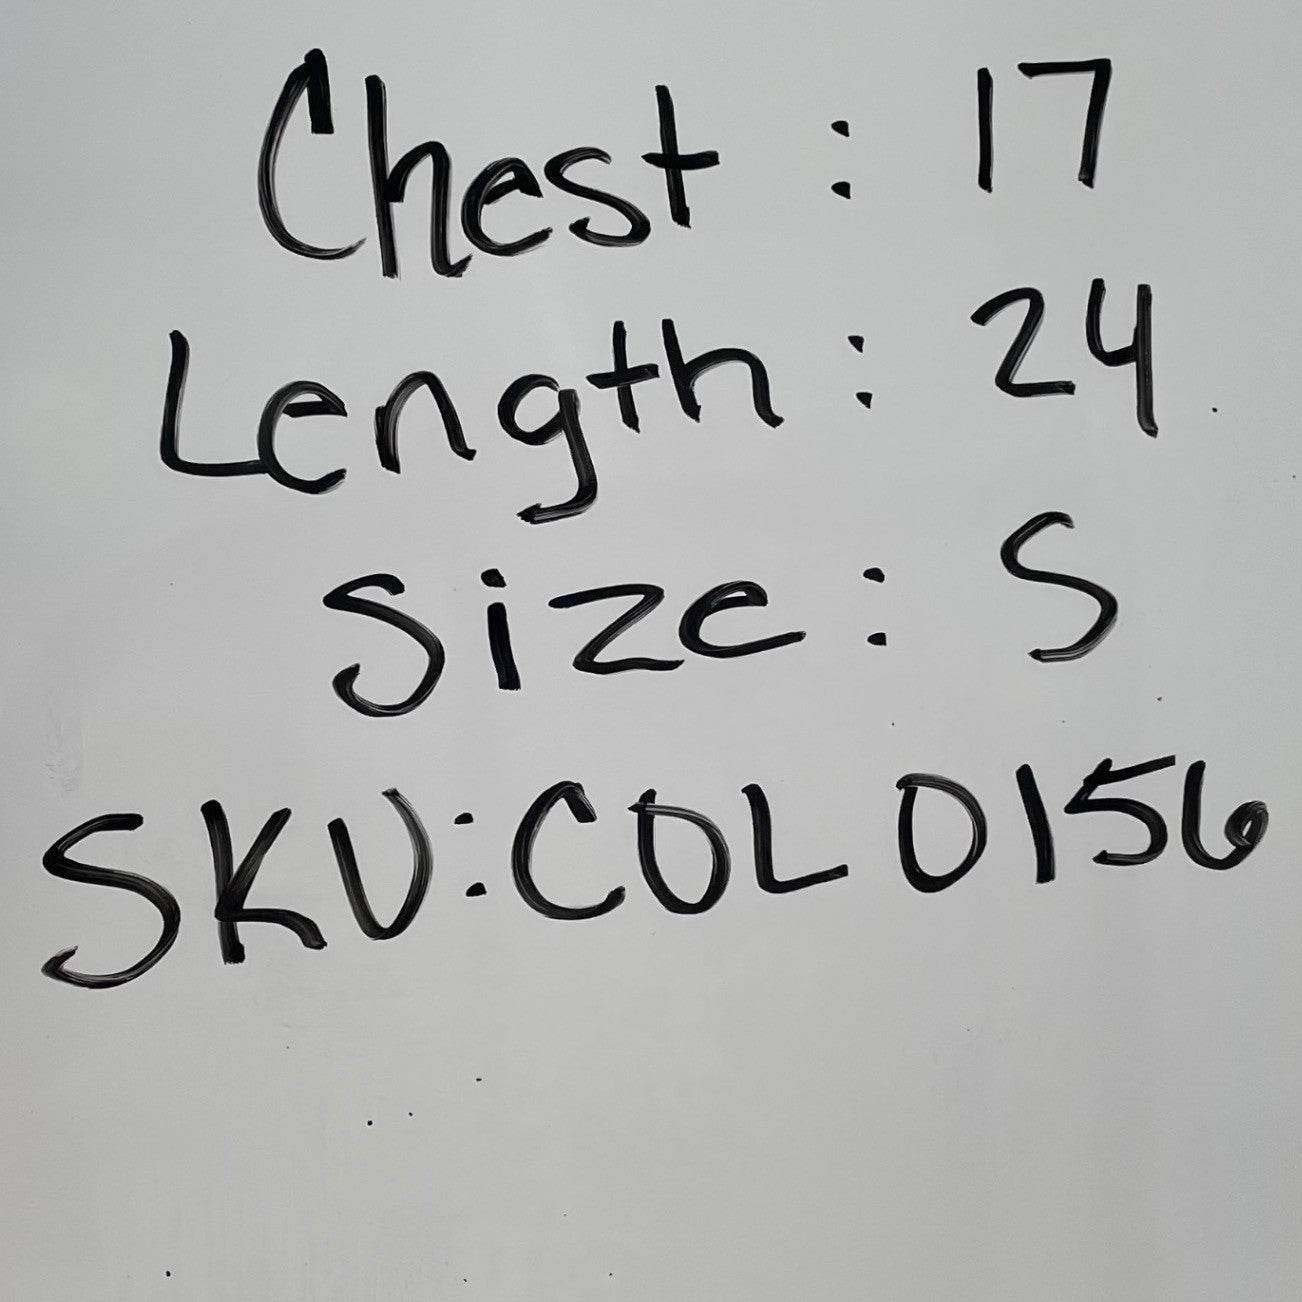 Chest : 17
Length : 24
Size : S
SKU:COL 0156